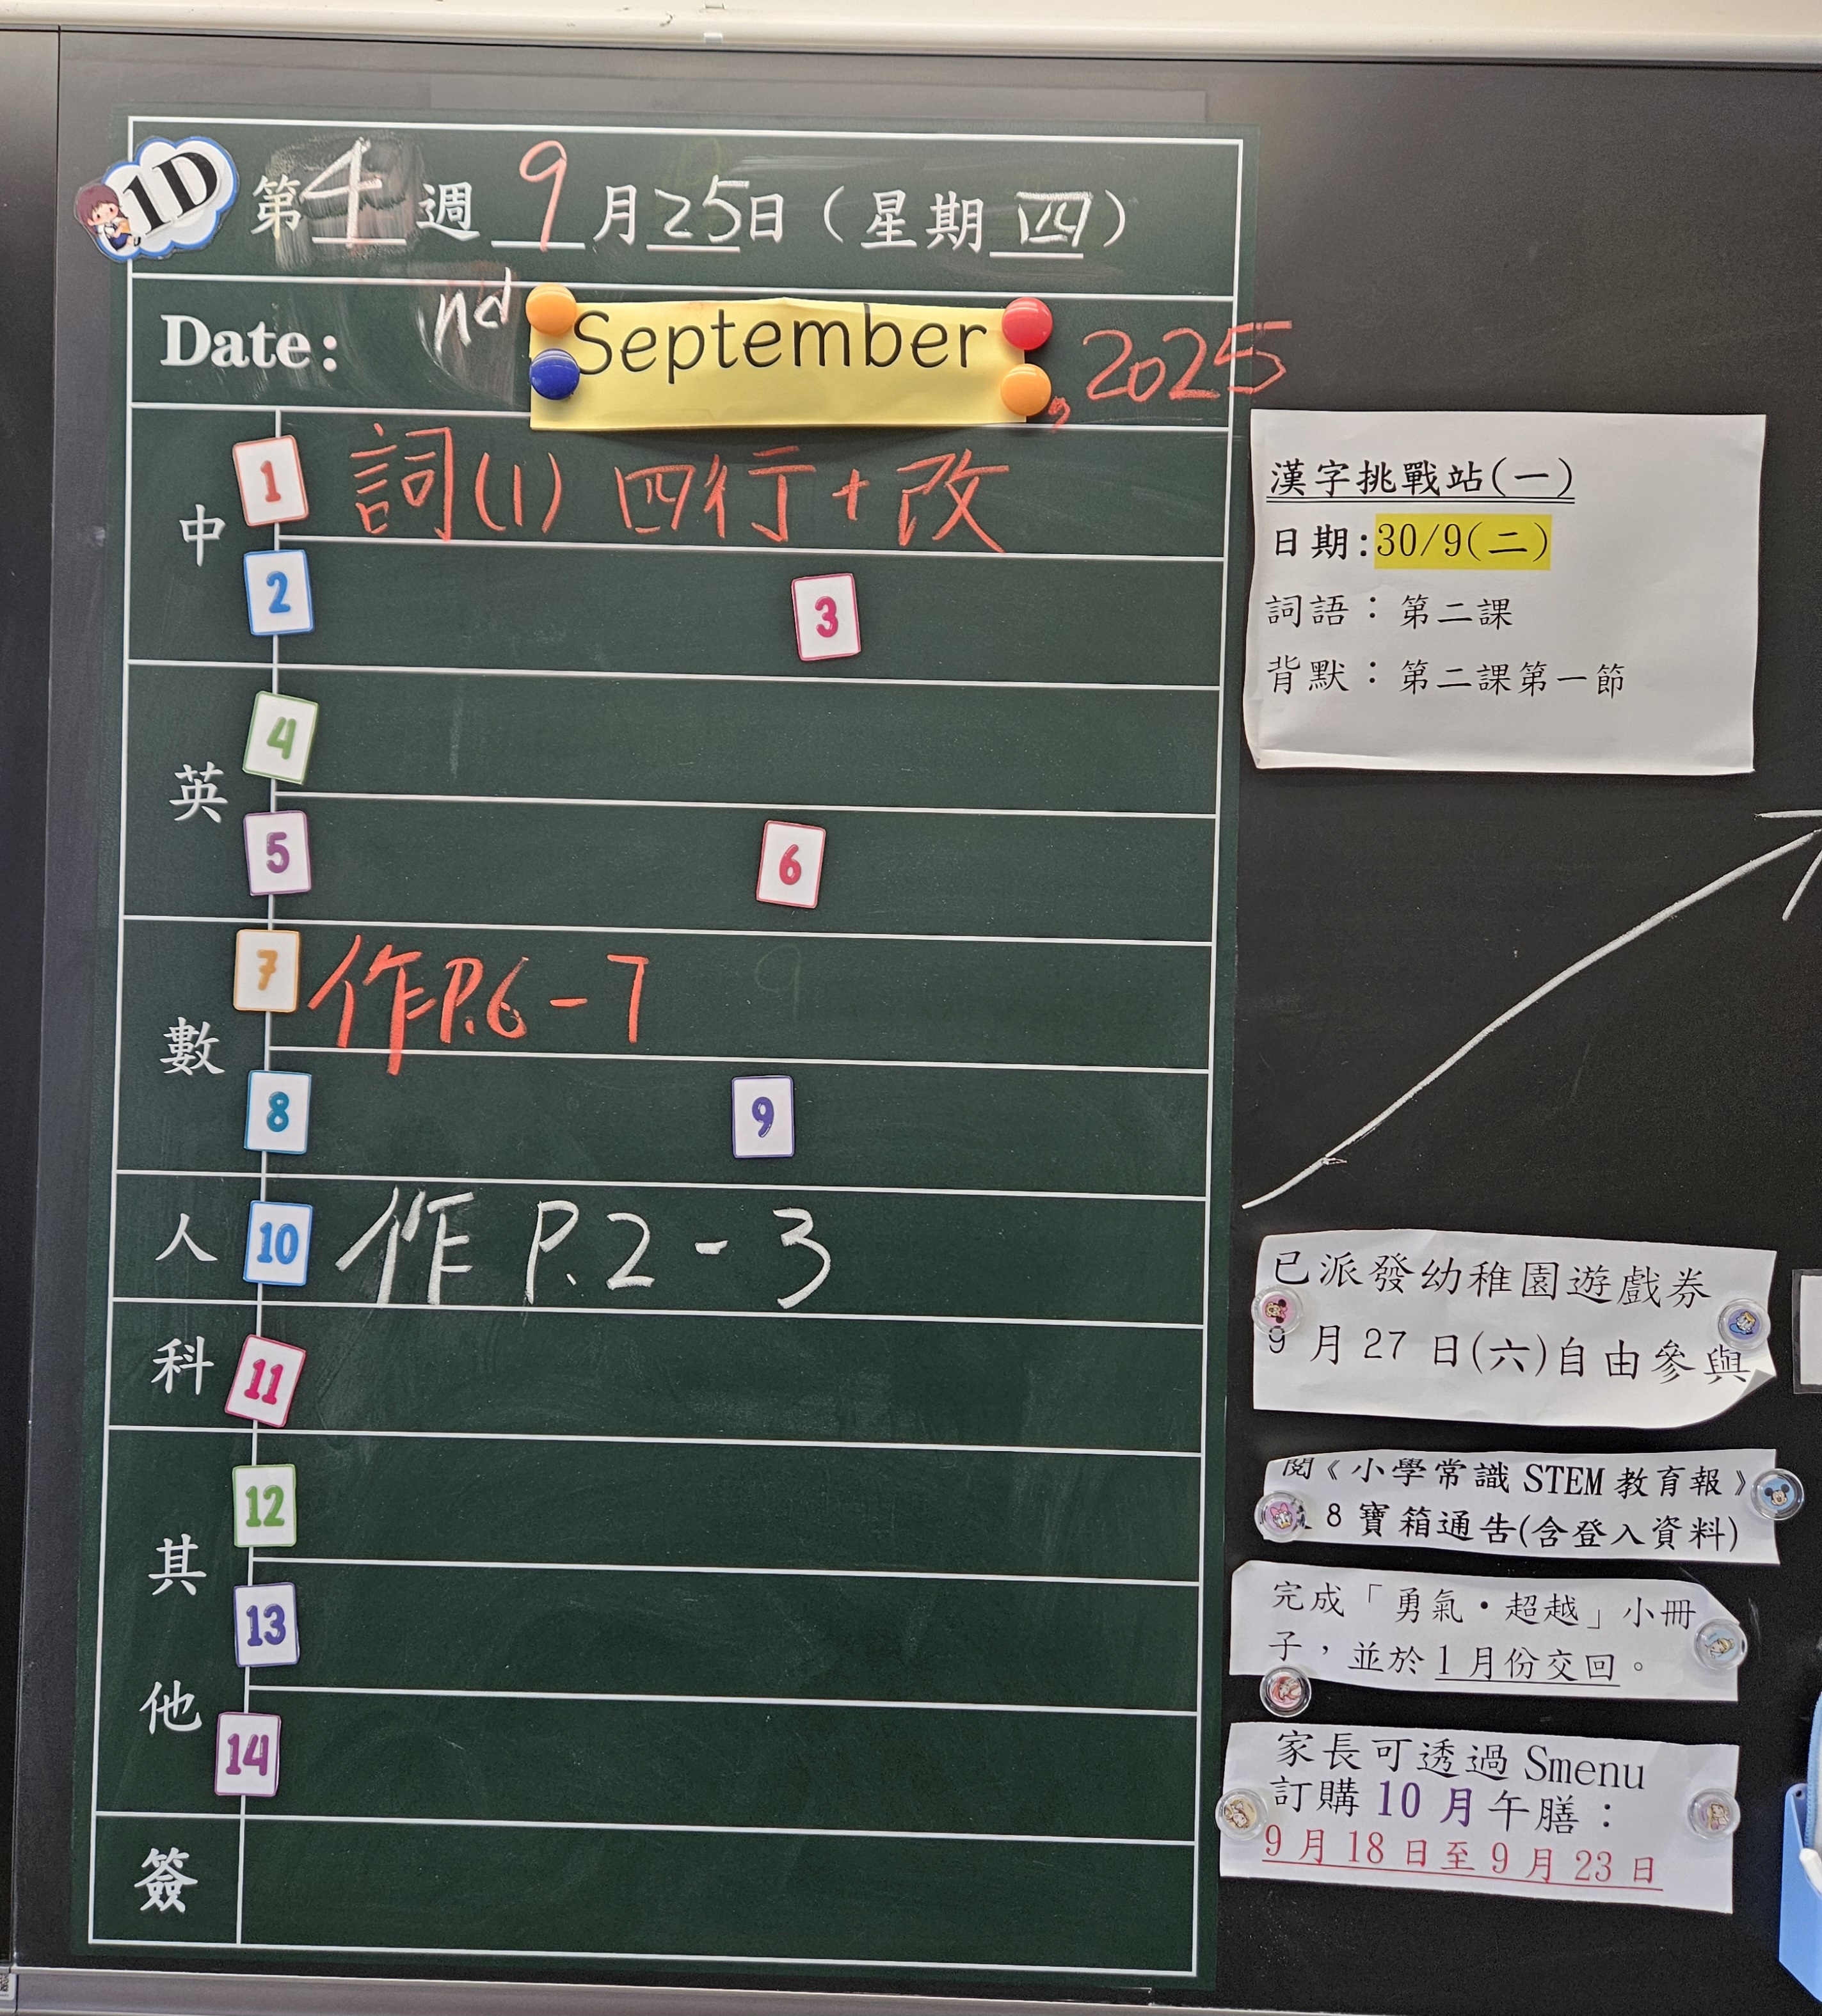 1D
第4週9月25日（星期四）
Date: nd September, 2025
中
1 詞(1) 四行+改
2
3
英
4
5
6
數
7 作P.6-7
8
9
人
10 作 P.2-3
科
11
其
12
13
他
14
簽
漢字挑戰站(一)
日期:30/9(二)
詞語：第二課
背默：第二課第一節
已派發幼稚園遊戲券
9月27日(六)自由參與
閱《小學常識STEM教育報》
8寶箱通告(含登入資料)
完成「勇氣・超越」小冊
子，並於1月份交回。
家長可透過Smenu
訂購10月午膳：
9月18日至9月23日